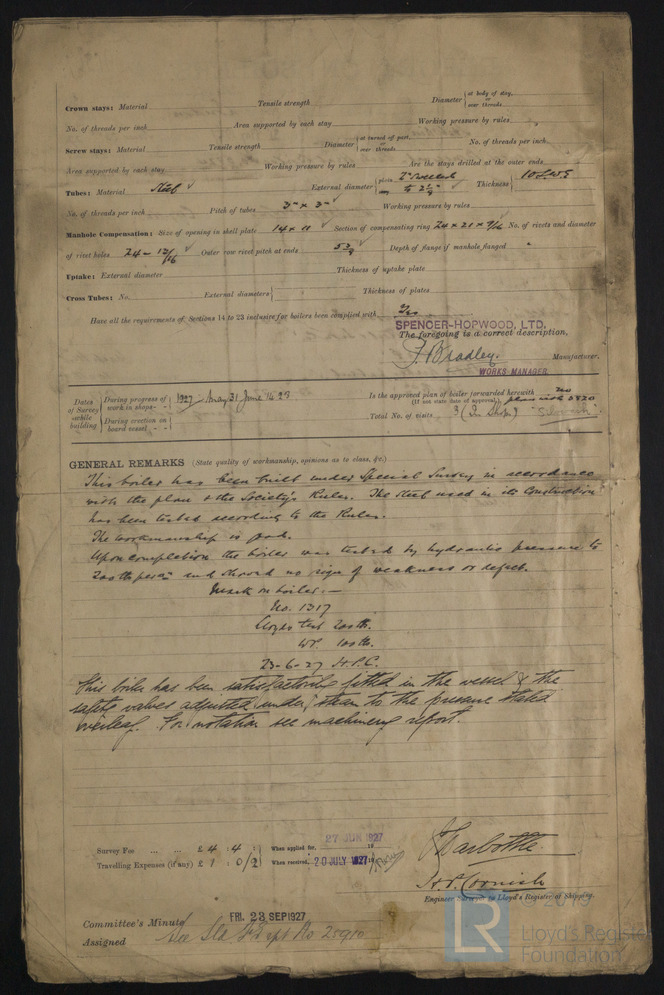 Crown stays: Material Tensile strength Diameter at body of stay, or over threads
No. of threads per inch Area supported by each stay Working pressure by rules
Screw stays: Material Tensile strength Diameter at turned off part, or over threads No. of threads per inch
Area supported by each stay Working pressure by rules Are the stays drilled at the outer ends
Tubes: Material Steel External diameter plain stay 2" to 2 1/4 Thickness 10 LWG
No. of threads per inch Pitch of tubes 3" x 3" Working pressure by rules
Manhole Compensation: Size of opening in shell plate 14 x 11 Section of compensating ring 24 x 21 x 9/16 No. of rivets and diameter
of rivet holes 24 - 13/16 Outer row rivet pitch at ends Depth of flange if manhole flanged
Uptake: External diameter Thickness of uptake plate
Cross Tubes: No. External diameters Thickness of plates
Have all the requirements of Sections 14 to 23 inclusive for boilers been complied with Yes
SPENCER-HOPWOOD, LTD.
The foregoing is a correct description,
F. Bradley. Manufacturer.
WORKS MANAGER.
Dates of Survey while building
During progress of work in shops - - 1927 May 31 June 16 23
During erection on board vessel - - -
Is the approved plan of boiler forwarded herewith no
(If not state date of approval)
Total No. of visits 3 (In Shops)
GENERAL REMARKS (State quality of workmanship, opinions as to class, &c.)
This boiler has been built under Special Survey in accordance
with the plan & the Society's Rules. The steel used in its construction
has been tested according to the Rules.
The workmanship is good.
Upon completion the boiler was tested by hydraulic pressure to
200 lb per □" and showed no sign of weakness or defect.
Mark on boiler:-
No. 1317
Lloyds test 200 lb.
WP. 100 lb.
23-6-27 H.P.C.
This boiler has been satisfactorily fitted in the vessel & the
safety valves adjusted under steam to the pressure stated
overleaf. For notation see machinery report.
Survey Fee ... ... £ 4 : 4 : When applied for, 27 JUN 1927
Travelling Expenses (if any) £ 1 : 0/2 When received, 20 JULY 1927
H.P. Cornish
Engineer Surveyor to Lloyd's Register of Shipping.
Committee's Minute FRI. 23 SEP 1927
Assigned See Sld Rpt No 25910
© 2019
LR
Lloyd's Register
Foundation